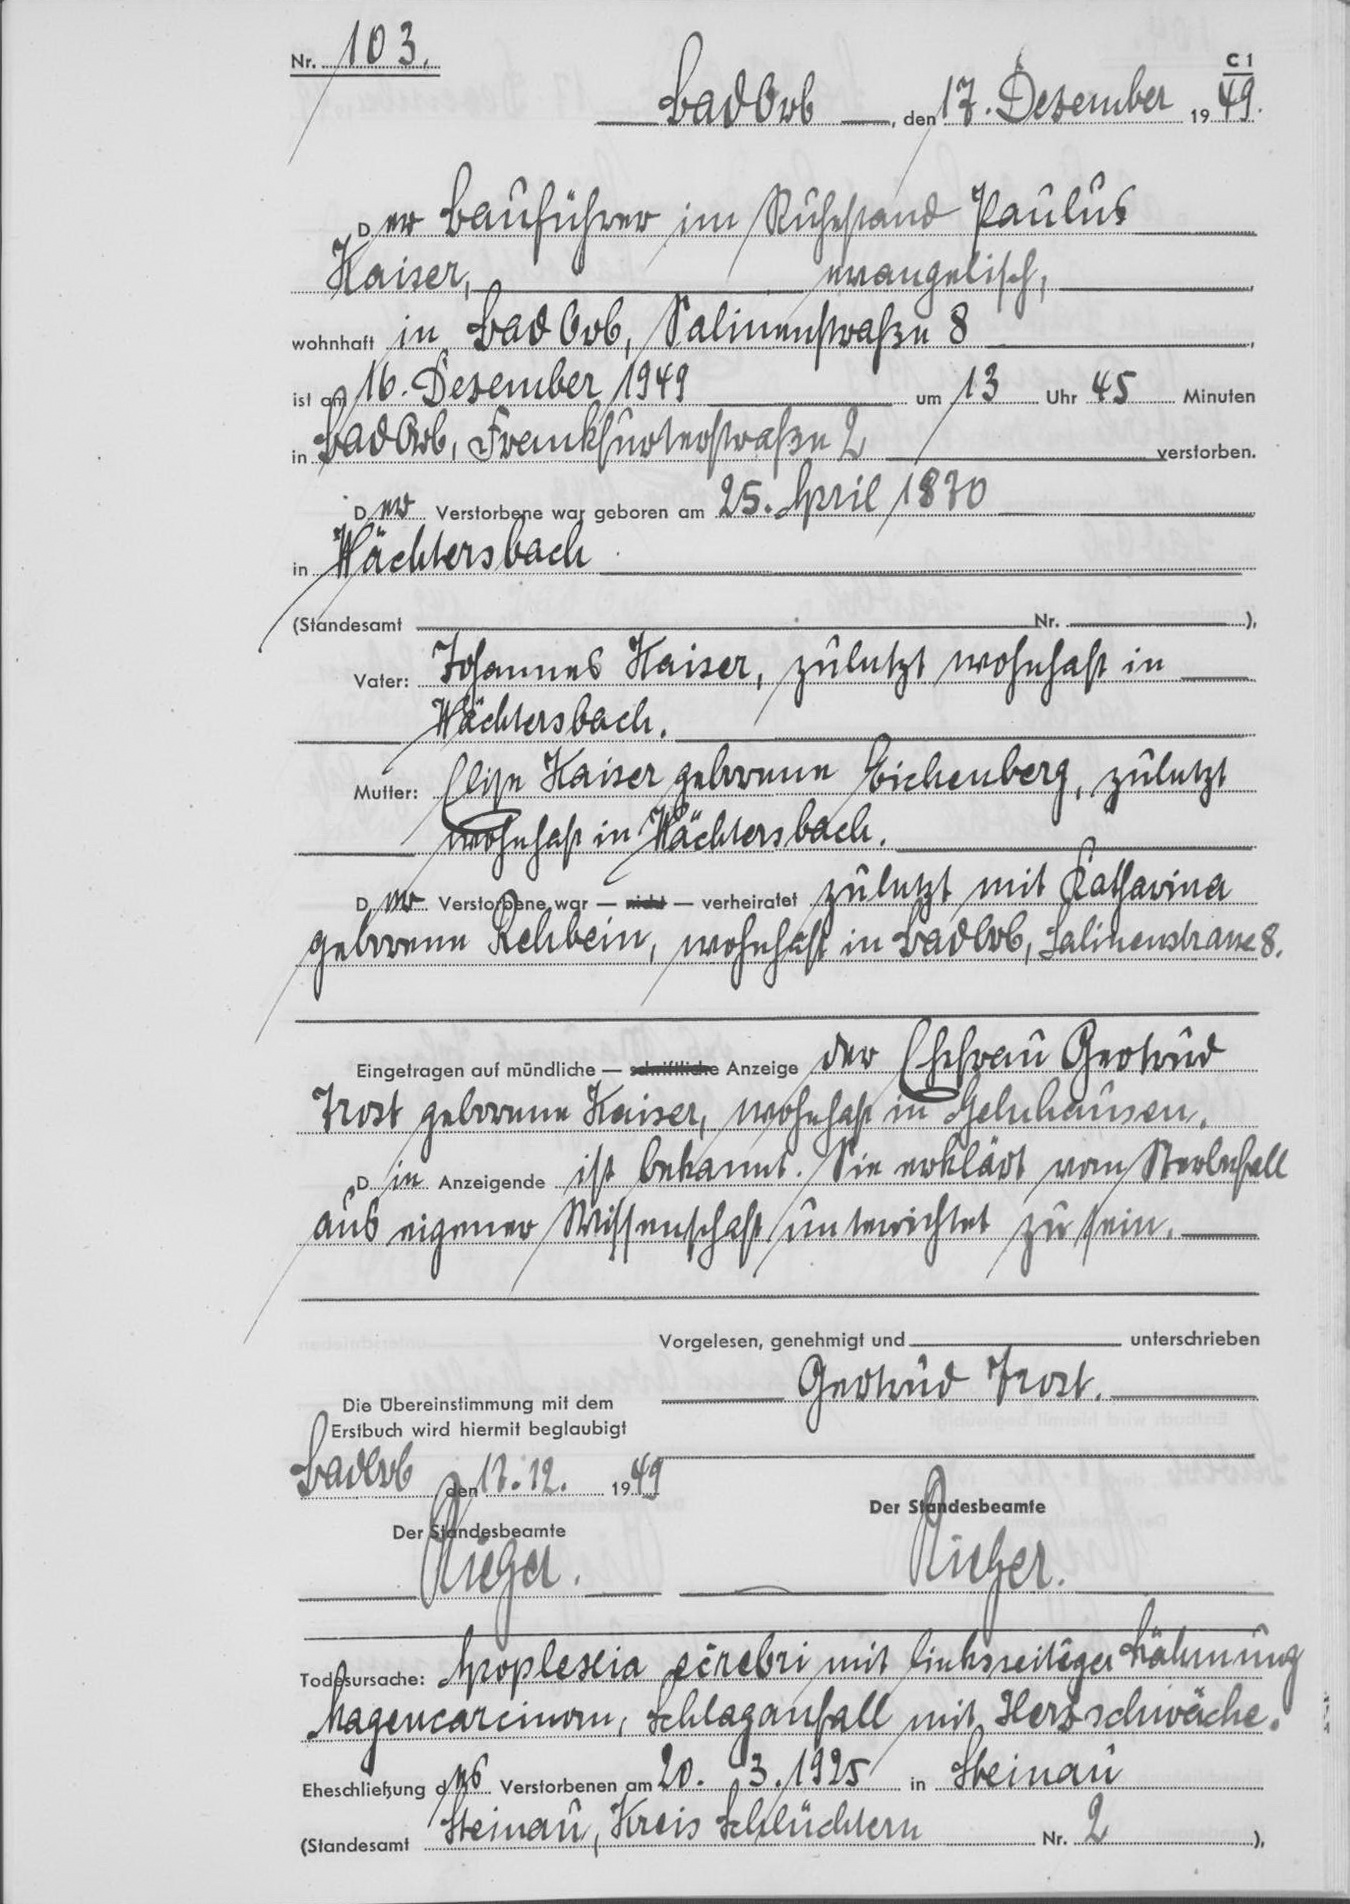 Nr. 103.
C 1
Bad Orb, den 17. Dezember 1949.
Der Bauführer im Ruhestand Paulus
Kaiser, evangelisch,
wohnhaft in Bad Orb, Salinenstraße 8,
ist am 16. Dezember 1949 um 13 Uhr 45 Minuten
in Bad Orb, Frankfurterstraße 2 verstorben.
Der Verstorbene war geboren am 25. April 1870
in Wächtersbach
(Standesamt Nr. ),
Vater: Johannes Kaiser, zuletzt wohnhaft in
Wächtersbach.
Mutter: Elise Kaiser geborene Eichenberg, zuletzt
wohnhaft in Wächtersbach.
Der Verstorbene war — nicht — verheiratet zuletzt mit Katharina
geborene Rehbein, wohnhaft in Bad Orb, Salinenstrasse 8.
Eingetragen auf mündliche — schriftliche Anzeige der Ehefrau Gertrud
Trost geborene Kaiser, wohnhaft in Gelnhausen.
Die Anzeigende ist bekannt. Sie erklärt vom Sterbefall
aus eigener Wissenschaft unterrichtet zu sein.
Vorgelesen, genehmigt und unterschrieben
Gertrud Trost.
Die Übereinstimmung mit dem
Erstbuch wird hiermit beglaubigt
Bad Orb den 17.12. 1949
Der Standesbeamte
Rieger.
Der Standesbeamte
Rieger.
Todesursache: Apoplexia cerebri mit linksseitiger Lähmung
Magencarcinom, Schlaganfall mit Herzschwäche.
Eheschließung des Verstorbenen am 20. 3. 1925 in Steinau
(Standesamt Steinau, Kreis Schlüchtern Nr. 2 ),